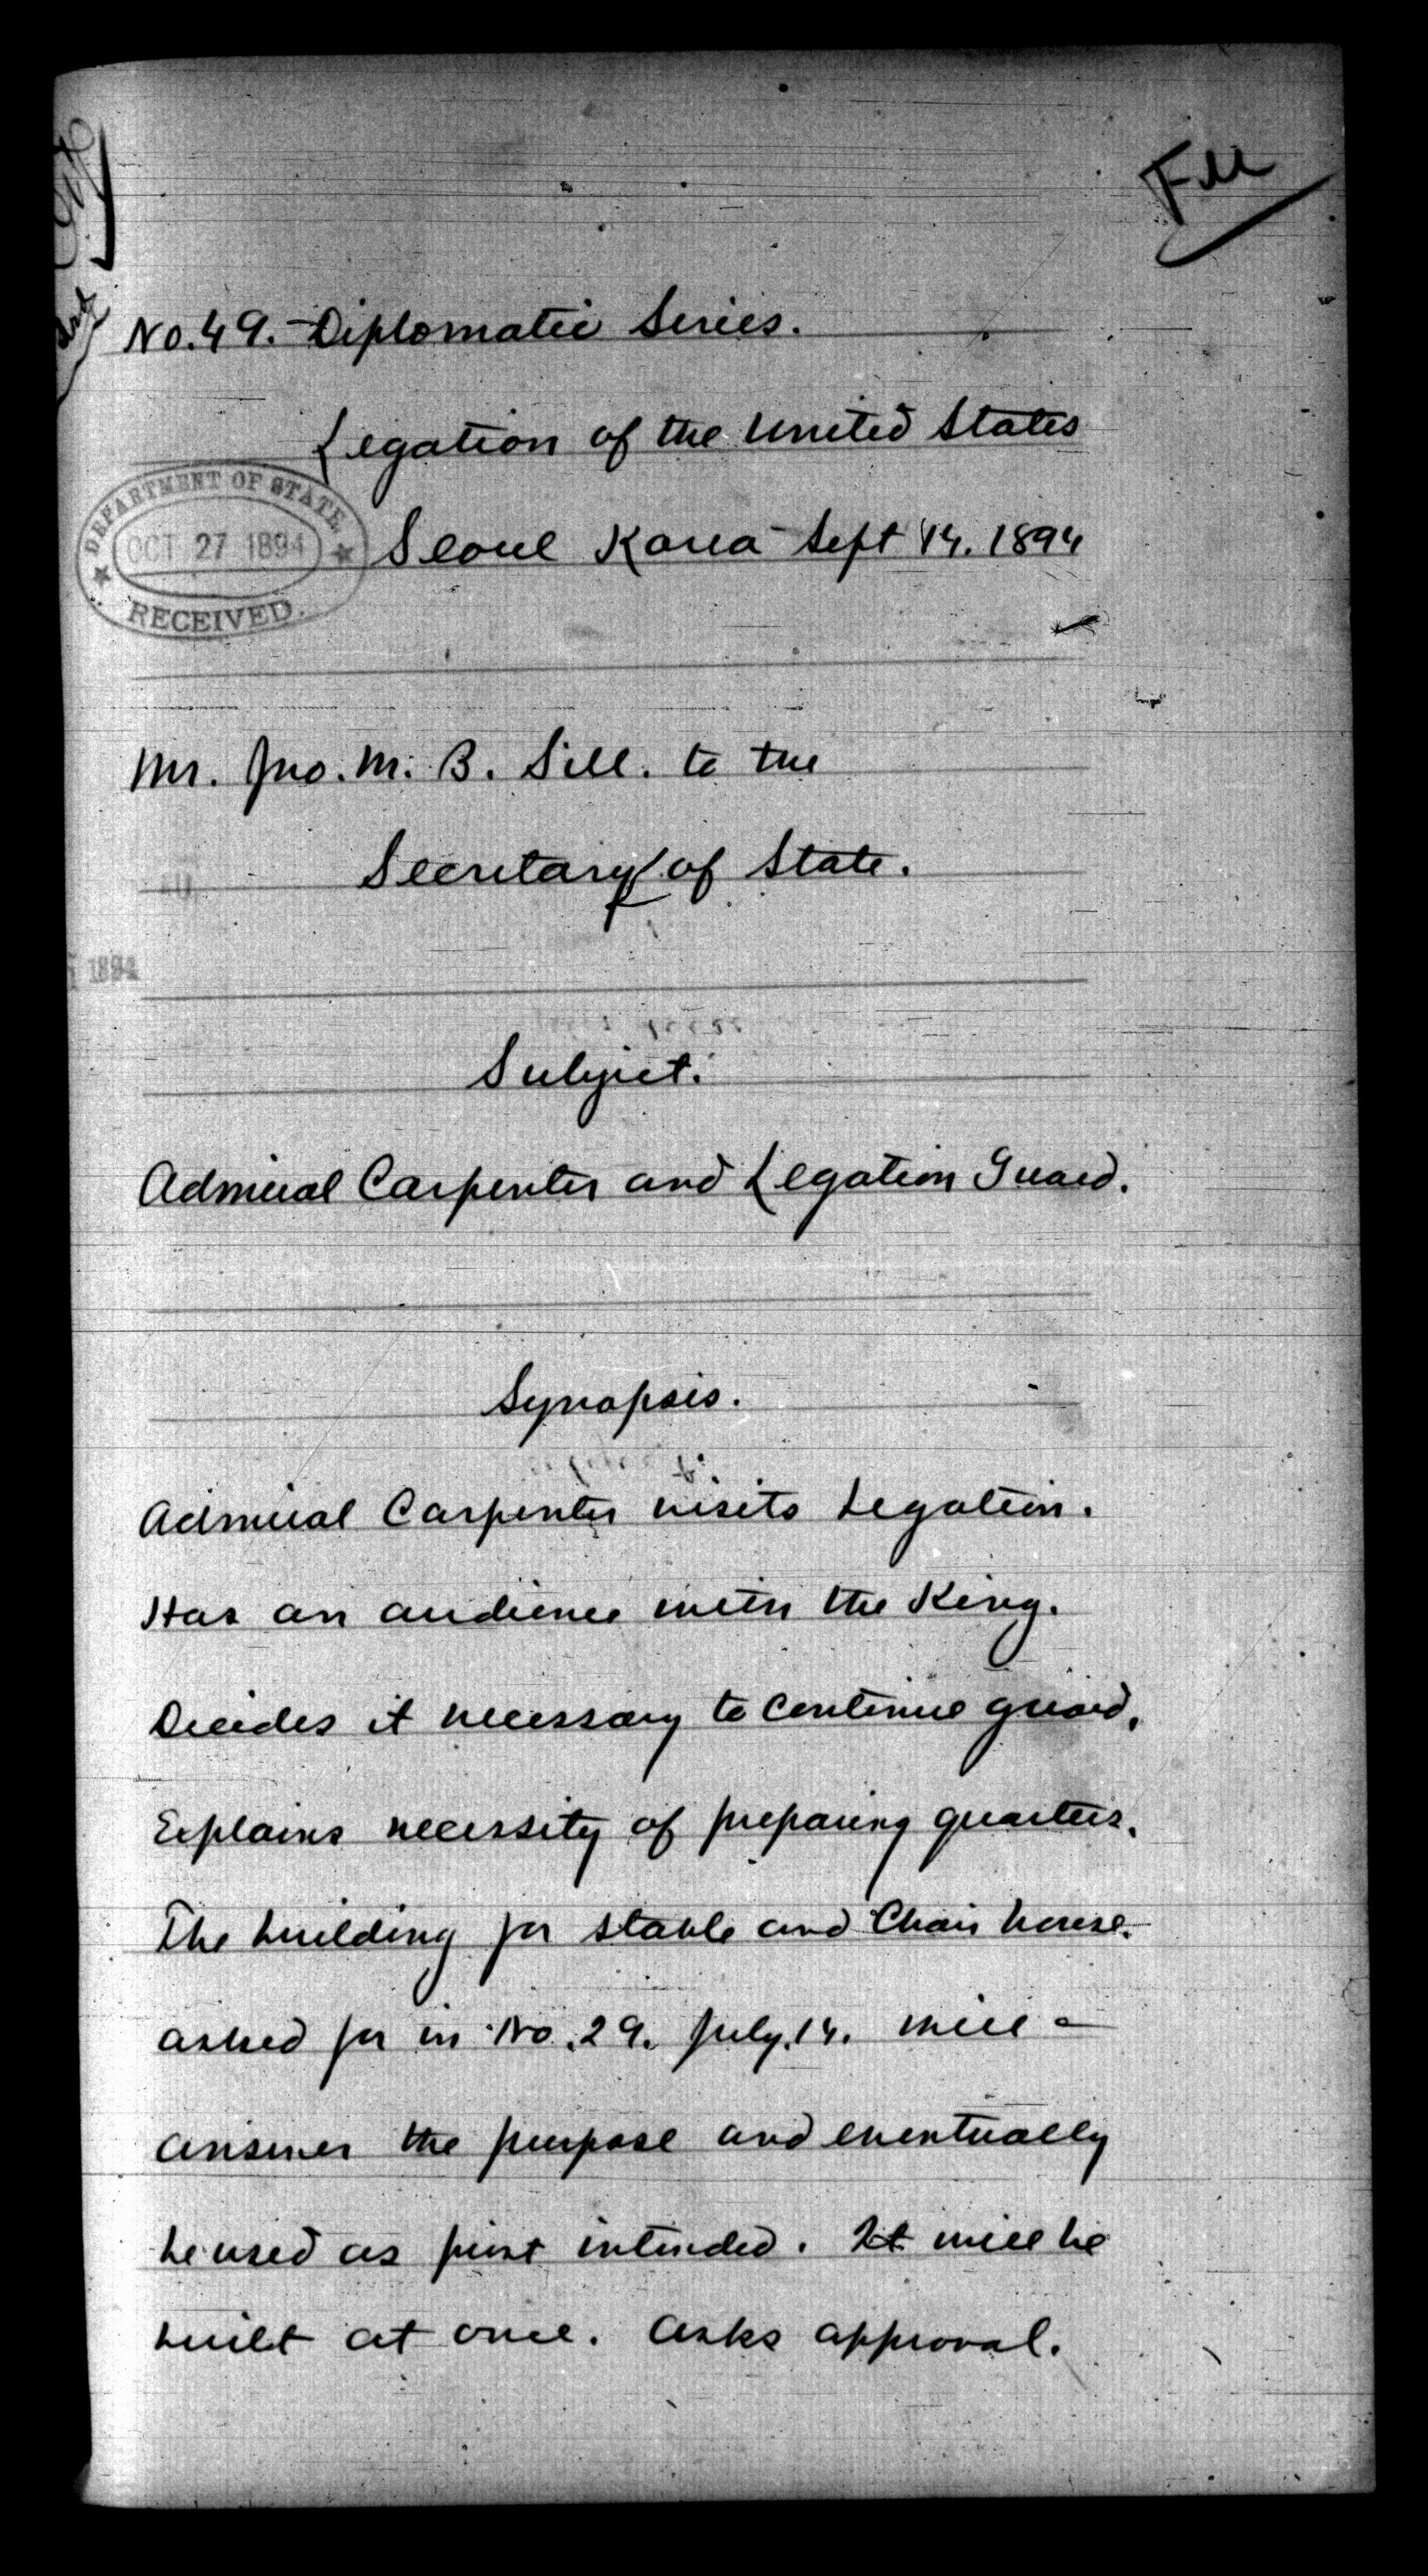 No. 49. - Diplomatic Series.
Legation of the United States
DEPARTMENT OF STATE
OCT 27 1894
RECEIVED.
Seoul Korea Sept 14. 1894
Mr. Jno. M. B. Sill. to the
Secretary of State.
1894
Subject.
Admiral Carpenter and Legation Guard.
Synopsis.
Admiral Carpenter visits Legation.
Has an audience with the King.
Decides it necessary to continue guard.
Explains necessity of preparing quarters.
The building for stable and Chair house
asked for in No. 29. July. 14. will -
answer the purpose and eventually
be used as first intended. It will be
built at once. Asks approval.